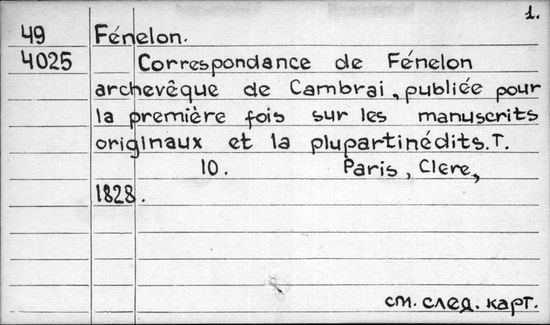 1.
49 Fénelon.
4025 Correspondance de Fénelon
archevêque de Cambrai, publiée pour
la première fois sur les manuscrits
originaux et la plupartinédits. T.
10. Paris, Clere,
1828.
см. след. карт.